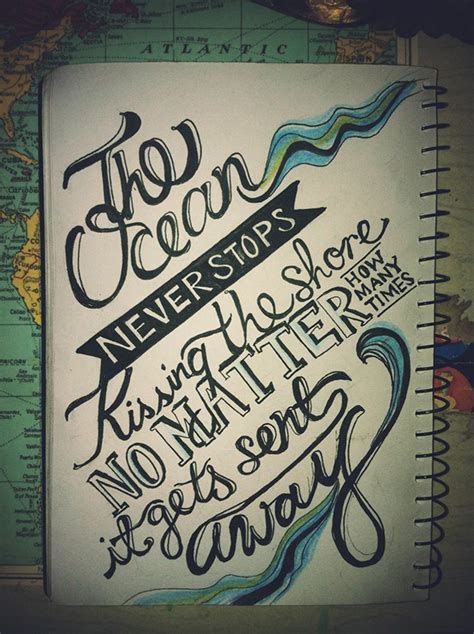 ATLANTIC
The
Ocean
NEVER STOPS
Kissing the shore
NO MATTER
HOW
MANY
TIMES
it gets sent
away